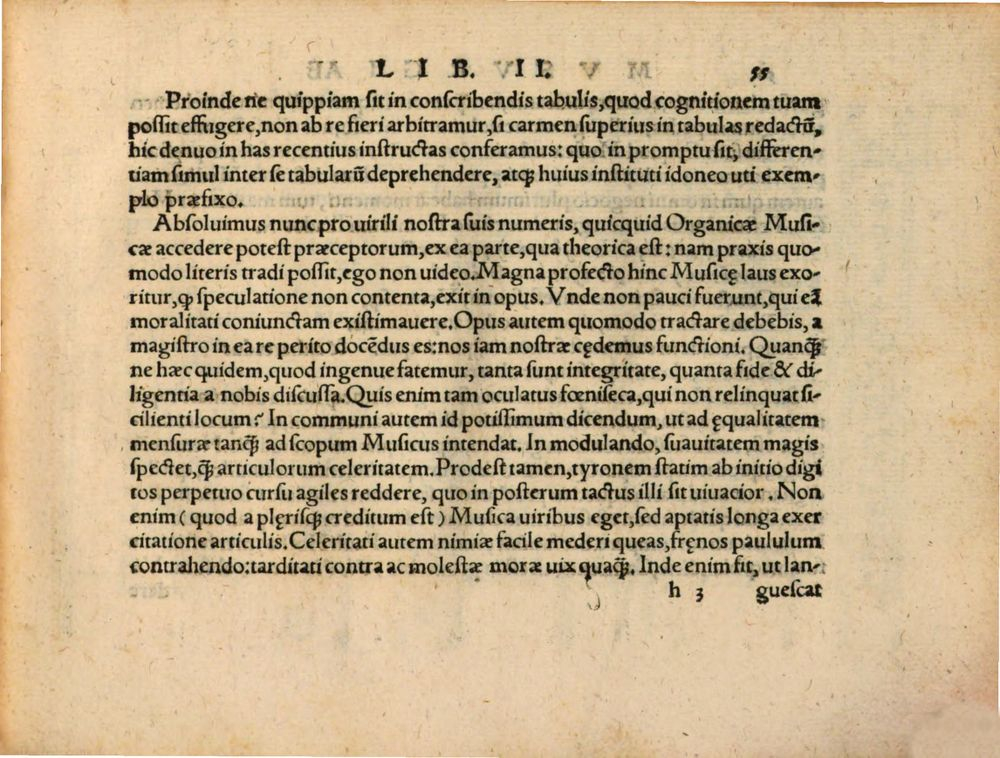 LIB. II. 55
Proinde ne quippiam sit in conscribendis tabulis, quod cognitionem tuam
possit effugere, non ab re fieri arbitramur, si carmen superius in tabulas redactū,
hic denuo in has recentius instructas conferamus: quo in promptu sit, differen-
tiam simul inter se tabularū deprehendere, atq; huius instituti idoneo uti exem-
plo præfixo.
Absoluimus nunc pro uirili nostra suis numeris, quicquid Organicæ Musi-
cæ accedere potest præceptorum, ex ea parte, qua theorica est: nam praxis quo-
modo literis tradi possit, ego non uideo. Magna profecto hinc Musicę laus exo-
ritur, ꝙ speculatione non contenta, exit in opus. Vnde non pauci fuerunt, qui eā
moralitati coniunctam existimauere. Opus autem quomodo tractare debebis, a
magistro in ea re perito docēdus es: nos iam nostræ cędemus functioni. Quanq̃
ne hæc quidem, quod ingenue fatemur, tanta sunt integritate, quanta fide & di-
ligentia a nobis discussa. Quis enim tam oculatus fœniseca, qui non relinquat si-
cilienti locum? In communi autem id potissimum dicendum, ut ad ęqualitatem
mensuræ tanq̃ ad scopum Musicus intendat. In modulando, suauitatem magis
spectet, q̃ articulorum celeritatem. Prodest tamen, tyronem statim ab initio digi
tos perpetuo cursu agiles reddere, quo in posterum tactus illi sit uiuacior. Non
enim (quod a plęrisq; creditum est) Musica uiribus eget, sed aptatis longa exer
citatione articulis. Celeritati autem nimiæ facile mederi queas, fręnos paululum
contrahendo: tarditati contra ac molestæ moræ uix quaq̃. Inde enim fit, ut lan-
h 3 guescat